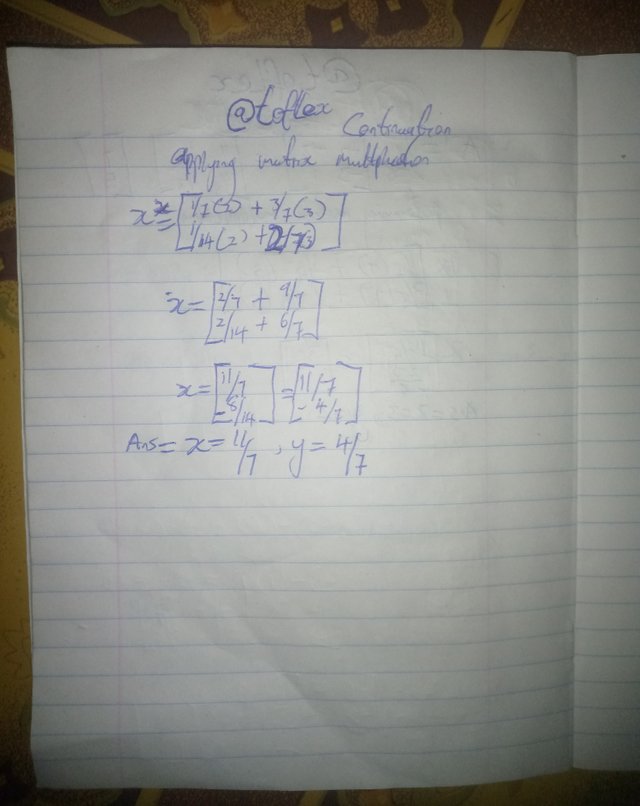 @toflex Continuation
applying matrix multiplication
x = [1/7(2) + 3/7(3)
1/14(2) + 2/7(3)]
x = [2/7 + 9/7
2/14 + 6/7]
x = [11/7
- 8/14] = [11/7
- 4/7]
Ans = x = 11/7 , y = 4/7